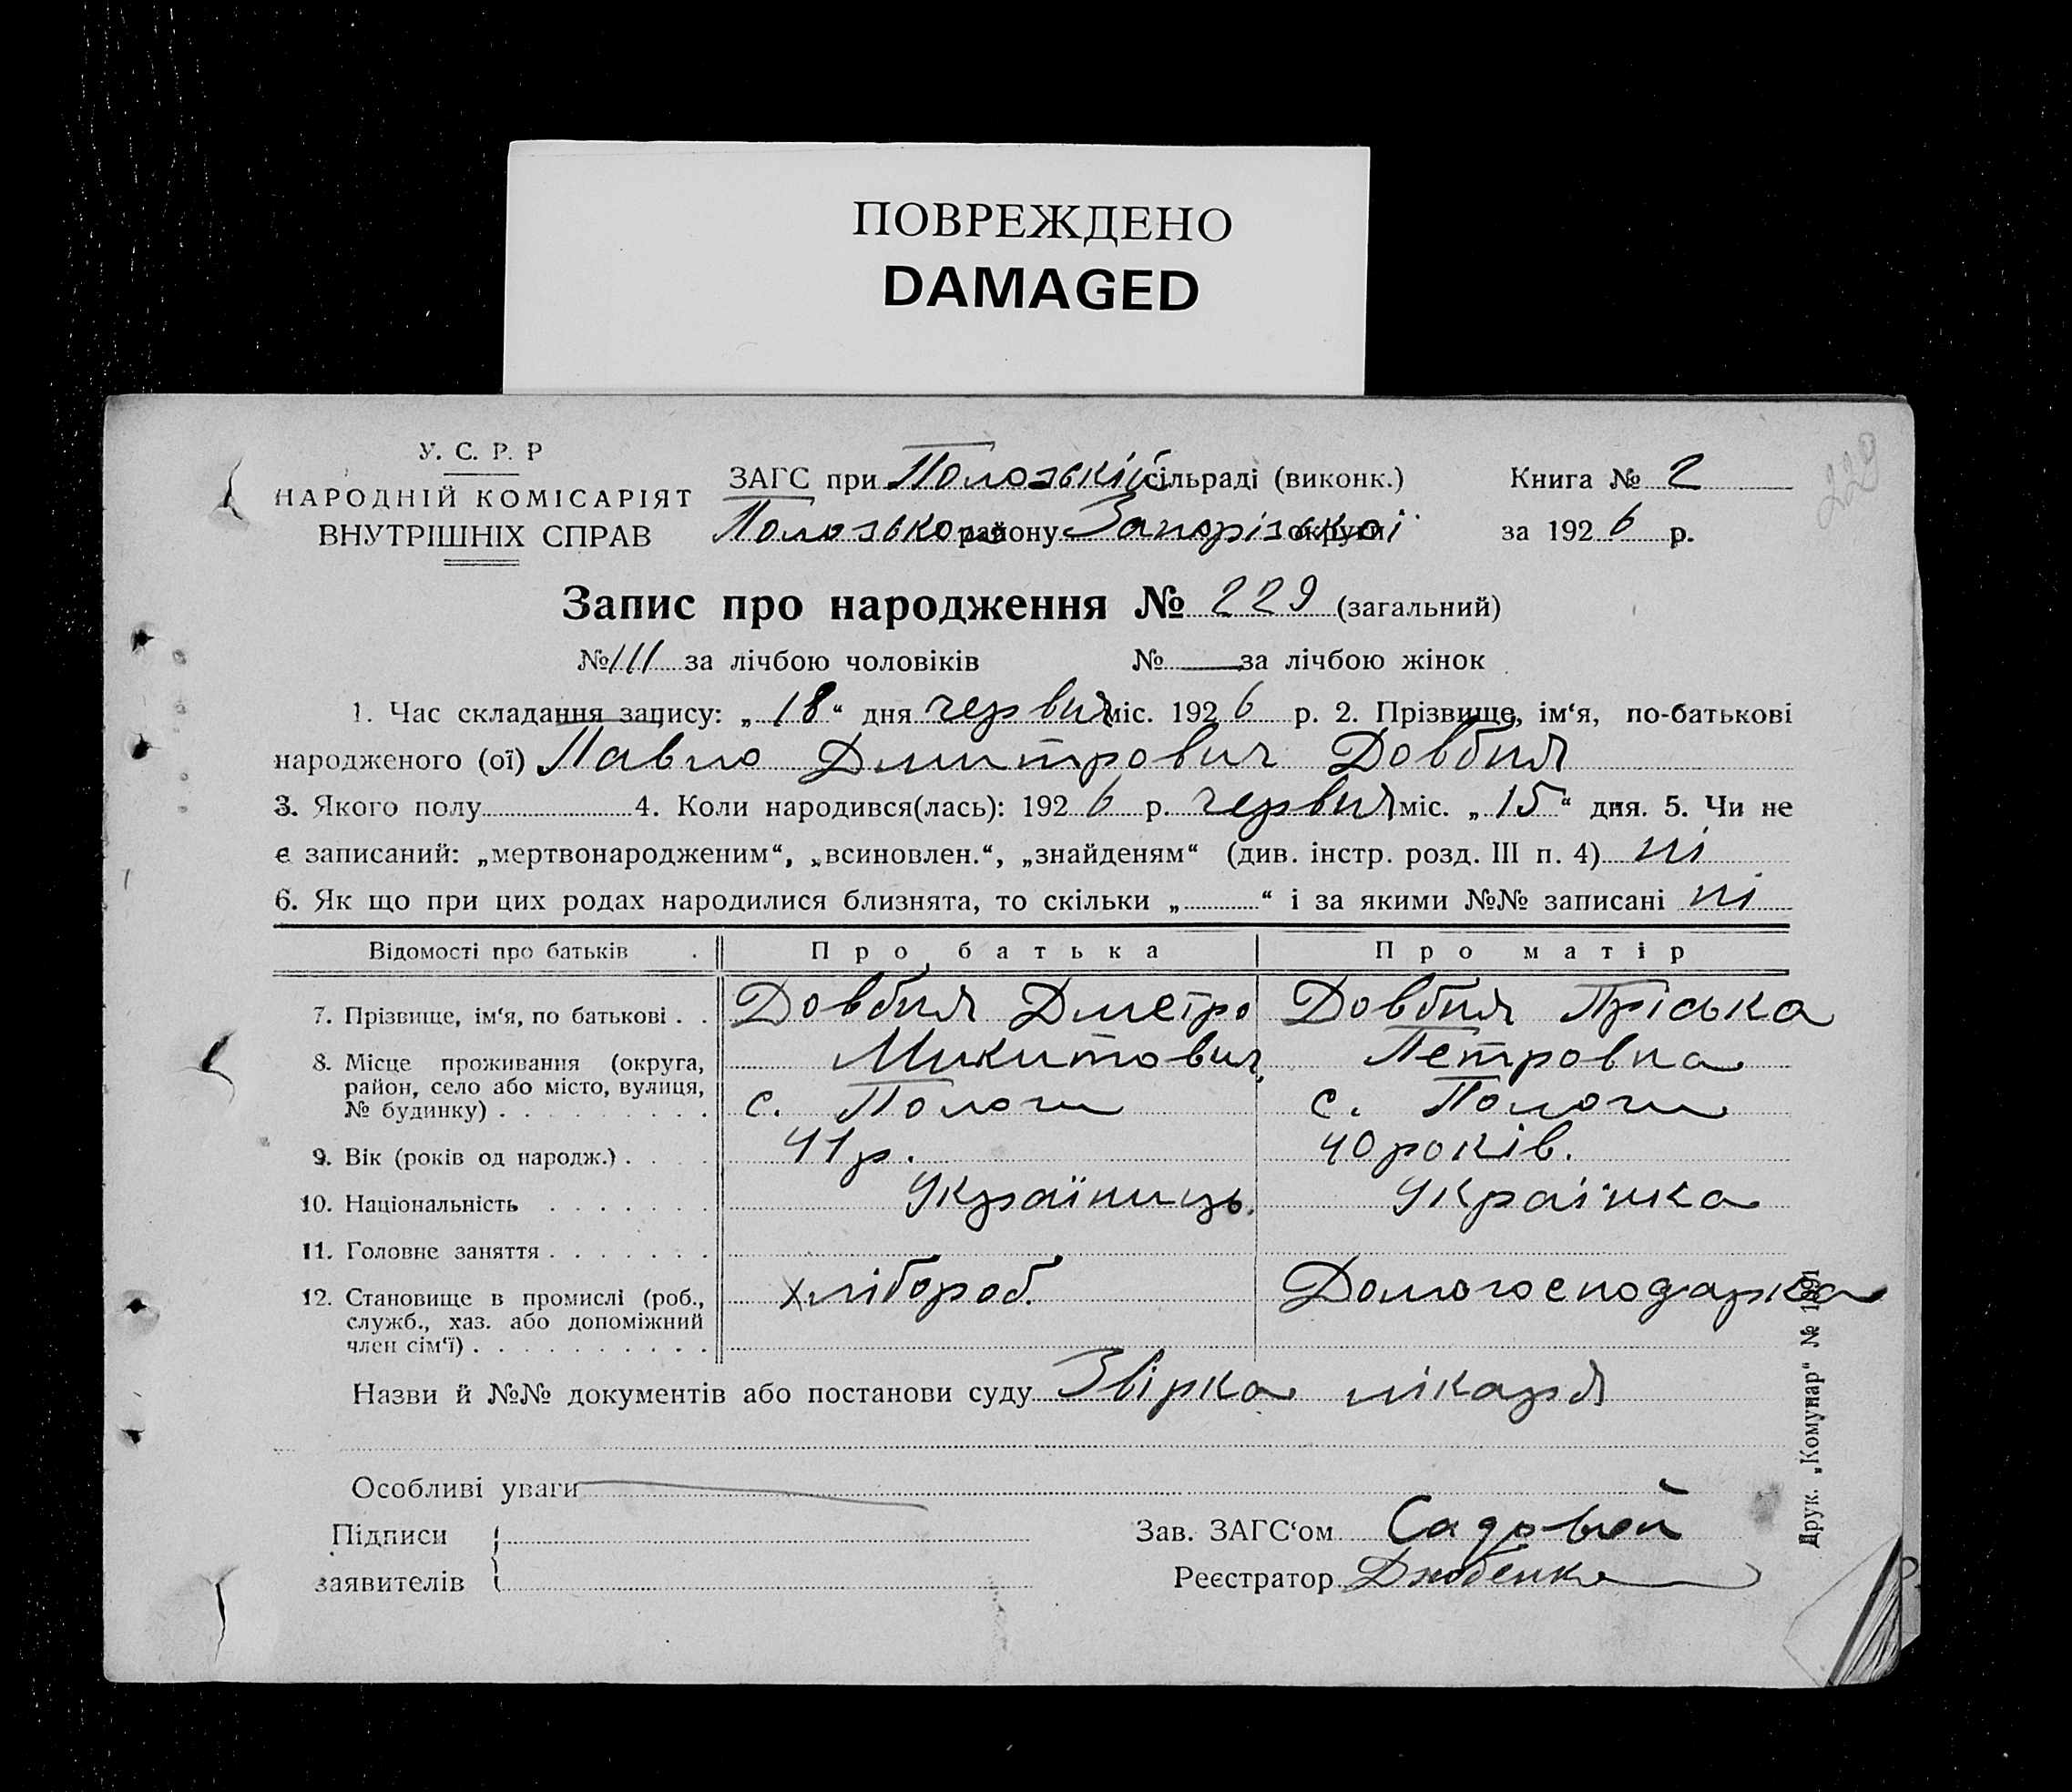 ПОВРЕЖДЕНО
DAMAGED
229
У. С. Р. Р
НАРОДНІЙ КОМІСАРІЯТ
ВНУТРІШНІХ СПРАВ
ЗАГС при Пологській сільраді (виконк.)
Пологського району Запорізької округи
Книга № 2
за 1926 р.
Запис про народження № 229 (загальний)
№ 111 за лічбою чоловіків № — за лічбою жінок
1. Час складання запису: „18“ дня червня міс. 1926 р. 2. Прізвище, ім‘я, по-батькові
народженого (ої) Павло Дмитрович Довбня
3. Якого полу 4. Коли народився(лась): 1926 р. червня міс. „15“ дня. 5. Чи не
є записаний: „мертвонародженим“, „всиновлен.“, „знайденям“ (див. інстр. розд. III п. 4) ні
6. Як що при цих родах народилися близнята, то скільки „ “ і за якими №№ записані ні
Відомості про батьків Про батька Про матір
7. Прізвище, ім‘я, по батькові . . Довбня Дметро Довбня Пріська
Микитович Петровна
8. Місце проживання (округа,
район, село або місто, вулиця,
№ будинку) . . . . . . . . . с. Пологи с. Пологи
9. Вік (років од народж.) . . . . 41 р. 40 років.
10. Національність . . . . . . . Українць. Українка
11. Головне заняття . . . . . . .
12. Становище в промислі (роб.,
служб., хаз. або допоміжний
член сім‘ї) . . . . . . . . . . хлібороб. Домогосподарка
Назви й №№ документів або постанови суду Звірка лікаря
Особливі уваги
Підписи
заявителів
Зав. ЗАГС‘ом Садовой
Реєстратор Дзюбенко
Друк. „Комунар“ №